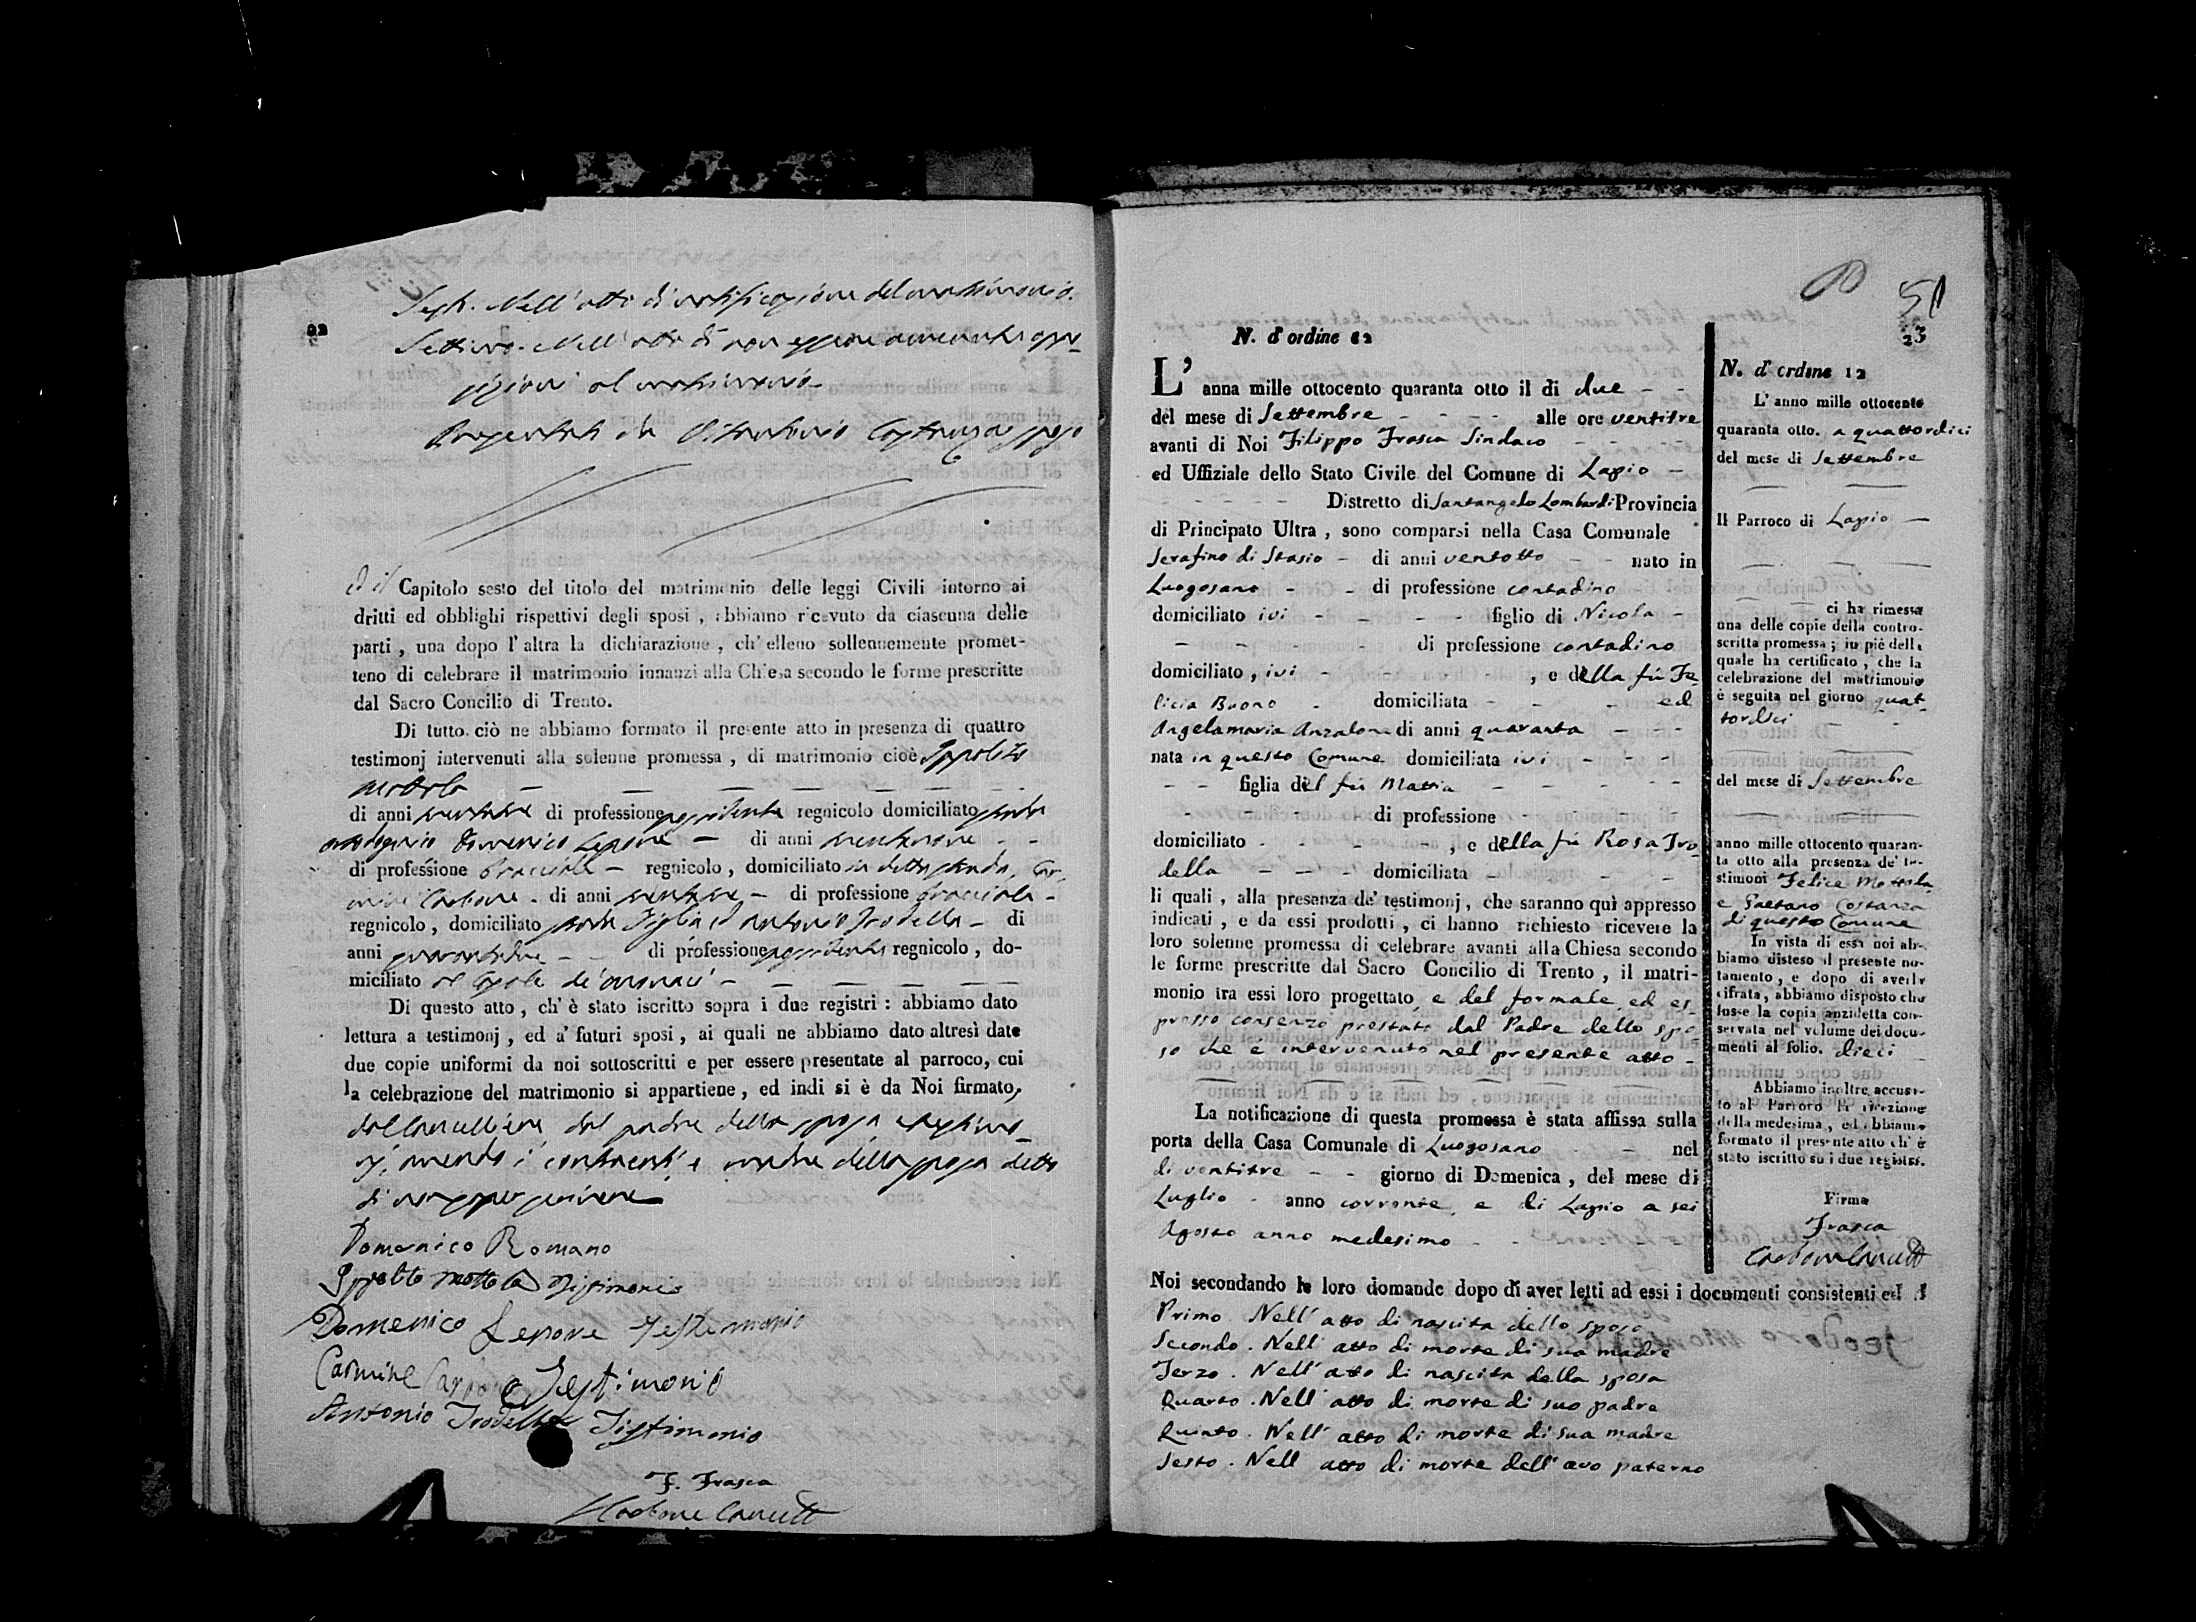 22
Sesto. Nell'atto di notificazione del matrimonio.
Settimo. Nell'atto di non essere avvenute oppo-
sizioni al matrimonio
Presentati da Vitantonio Costanza sposo
ed il Capitolo sesto del titolo del matrimonio delle leggi Civili intorno ai
dritti ed obblighi rispettivi degli sposi , abbiamo ricevuto da ciascuna delle
parti , una dopo l'altra la dichiarazione , ch'elleno sollennemente promet-
teno di celebrare il matrimonio innanzi alla Chiesa secondo le forme prescritte
dal Sacro Concilio di Trento.
Di tutto ciò ne abbiamo formato il presente atto in presenza di quattro
testimonj intervenuti alla solenne promessa , di matrimonio cioè Ippolito
Mottola
di anni di professione possidente regnicolo domiciliato strada
Domenico Lepore - di anni
di professione bracciale - regnicolo , domiciliato in detta strada, Car-
mine Carbone - di anni - di professione bracciale -
regnicolo , domiciliato strada ed Antonio Trodella - di
anni di professione possidente regnicolo , do-
miciliato
Di questo atto , ch'è stato iscritto sopra i due registri : abbiamo dato
lettura a testimonj , ed a' futuri sposi , ai quali ne abbiamo dato altresì date
due copie uniformi da noi sottoscritti e per essere presentate al parroco, cui
la celebrazione del matrimonio si appartiene , ed indi si è da Noi firmato,
dal Cancelliere dal padre della sposa e testimo-
nj, avendo i contraenti e madre della sposa detto
di non saper scrivere
Domenico Romano
Ippolito Mottola Testimonio
Domenico Lepore Testemonio
Carmine Carbone Testimonio
Antonio Trodella Tistimonio
F. Frasca
Carbone Cancell
51
23
N. d'ordine 12
L'anna mille ottocento quaranta otto il di due - -
del mese di Settembre - - - - alle ore ventitre
avanti di Noi Filippo Frasca Sindaco - - - -
ed Uffiziale dello Stato Civile del Comune di Lapio -
- - - - - Distretto di Santangelo Lombardi Provincia
di Principato Ultra , sono comparsi nella Casa Comunale
Serafino di Stasio - di anni ventotto - - nato in
Luogosano - - di professione contadino
domiciliato ivi - - - - figlio di Nicola -
- - - - di professione contadino
domiciliato , ivi - - - - , e della fù Fe-
licia Buono - domiciliata - - - ed
Angelamaria Anzalone di anni quaranta - - -
nata in questo Comune domiciliata ivi - - -
- - figlia del fù Mattia - - - - -
- - - - di professione -
domiciliato - - - - , e della fù Rosa Tro-
della - - - domiciliata - - - -
li quali , alla presenza de' testimonj , che saranno quì appresso
indicati , e da essi prodotti , ci hanno richiesto ricevere la
loro solenne promessa di celebrare avanti alla Chiesa secondo
le forme prescritte dal Sacro Concilio di Trento , il matri-
monio tra essi loro progettato, e del formale, ed es-
presso consenzo prestato dal Padre dello spo-
so che è intervenuto nel presente atto -
La notificazione di questa promessa è stata affissa sulla
porta della Casa Comunale di Luogosano - - nel
di ventitre - - giorno di Domenica , del mese di
Luglio - anno corrente, e di Lapio a sei
Agosto anno medesimo - -
Noi secondando le loro domande dopo di aver letti ad essi i documenti consistenti ed il
Primo. Nell'atto di nascita dello sposo
Secondo. Nell'atto di morte di sua madre
Terzo. Nell'atto di nascita della sposa
Quarto. Nell'atto di morte di suo padre
Quinto. Nell'atto di morte di sua madre
Sesto. Nell'atto di morte dell'avo paterno
N. d'ordine 12
L'anno mille ottocento
quaranta otto. a quattordici
del mese di Settembre
Il Parroco di Lapio -
ci ha rimessa
una delle copie della contro-
scritta promessa ; in piè della
quale ha certificato , che la
celebrazione del matrimonio
è seguita nel giorno quat-
tordici
del mese di Settembre
anno mille ottocento quaran-
ta otto alla presenza de' te-
stimoni Felice Mottola
e Gaetano Costanza
di questo Comune
In vista di essa noi ab-
biamo disteso il presente no-
tamento , e dopo di averlo
cifrata, abbiamo disposto che
fusse la copia anzidetta con-
servata nel volume dei docu-
menti al folio. dieci
Abbiamo inoltre accusa-
to al Parroco la ricezione
della medesima , ed abbiamo
formato il presente atto ch'è
stato iscritto su i due registri.
Firma
Frasca
Carbone Cancell